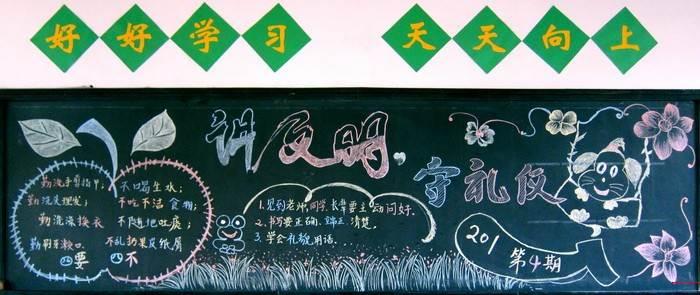 好好学习 天天向上
讲文明,守礼仪
勤洗手剪指甲;
勤洗头理发;
勤洗澡换衣
勤刷牙漱口.
四要
不喝生水;
不吃不洁食物;
不随地吐痰;
不乱扔果皮纸屑
四不
1.见到老师,同学、长辈要主动问好.
2.书写要正确、端正、清楚.
3.学会礼貌用语.
201 第4期